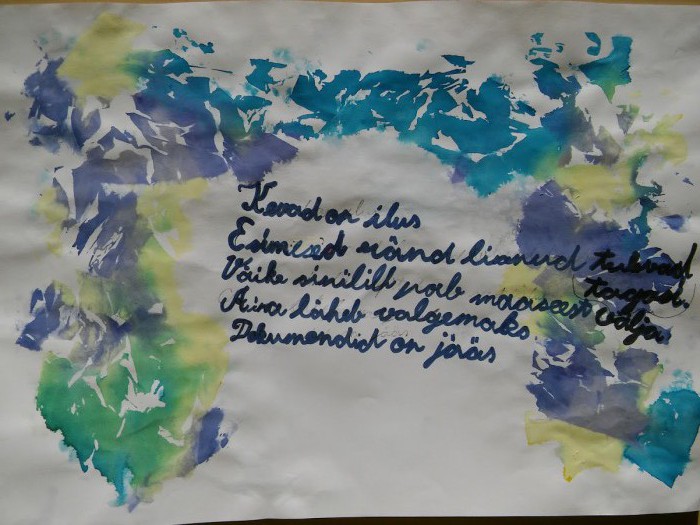 Kevad on ilus
Esimesed ränd linnud tulevad tagasi.
Väike sinilill poeb maaseest välja.
Aina läheb valgemaks.
Dokumendid on jääs